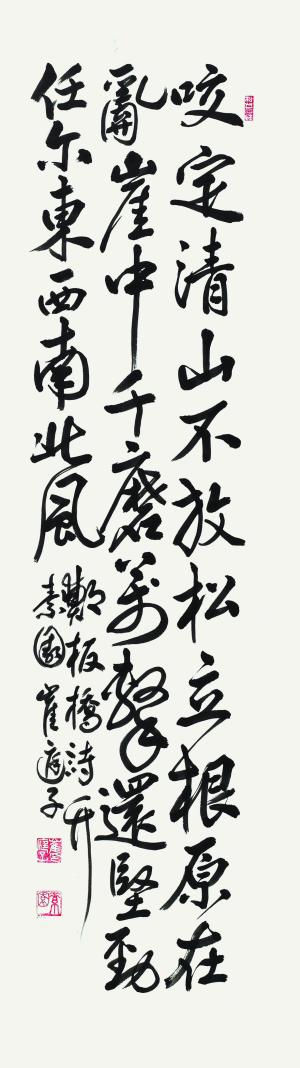 咬定清山不放松立根原在
亂崖中千磨萬擊還堅勁
任尔東西南北風
鄭板橋詩竹
素園崔子